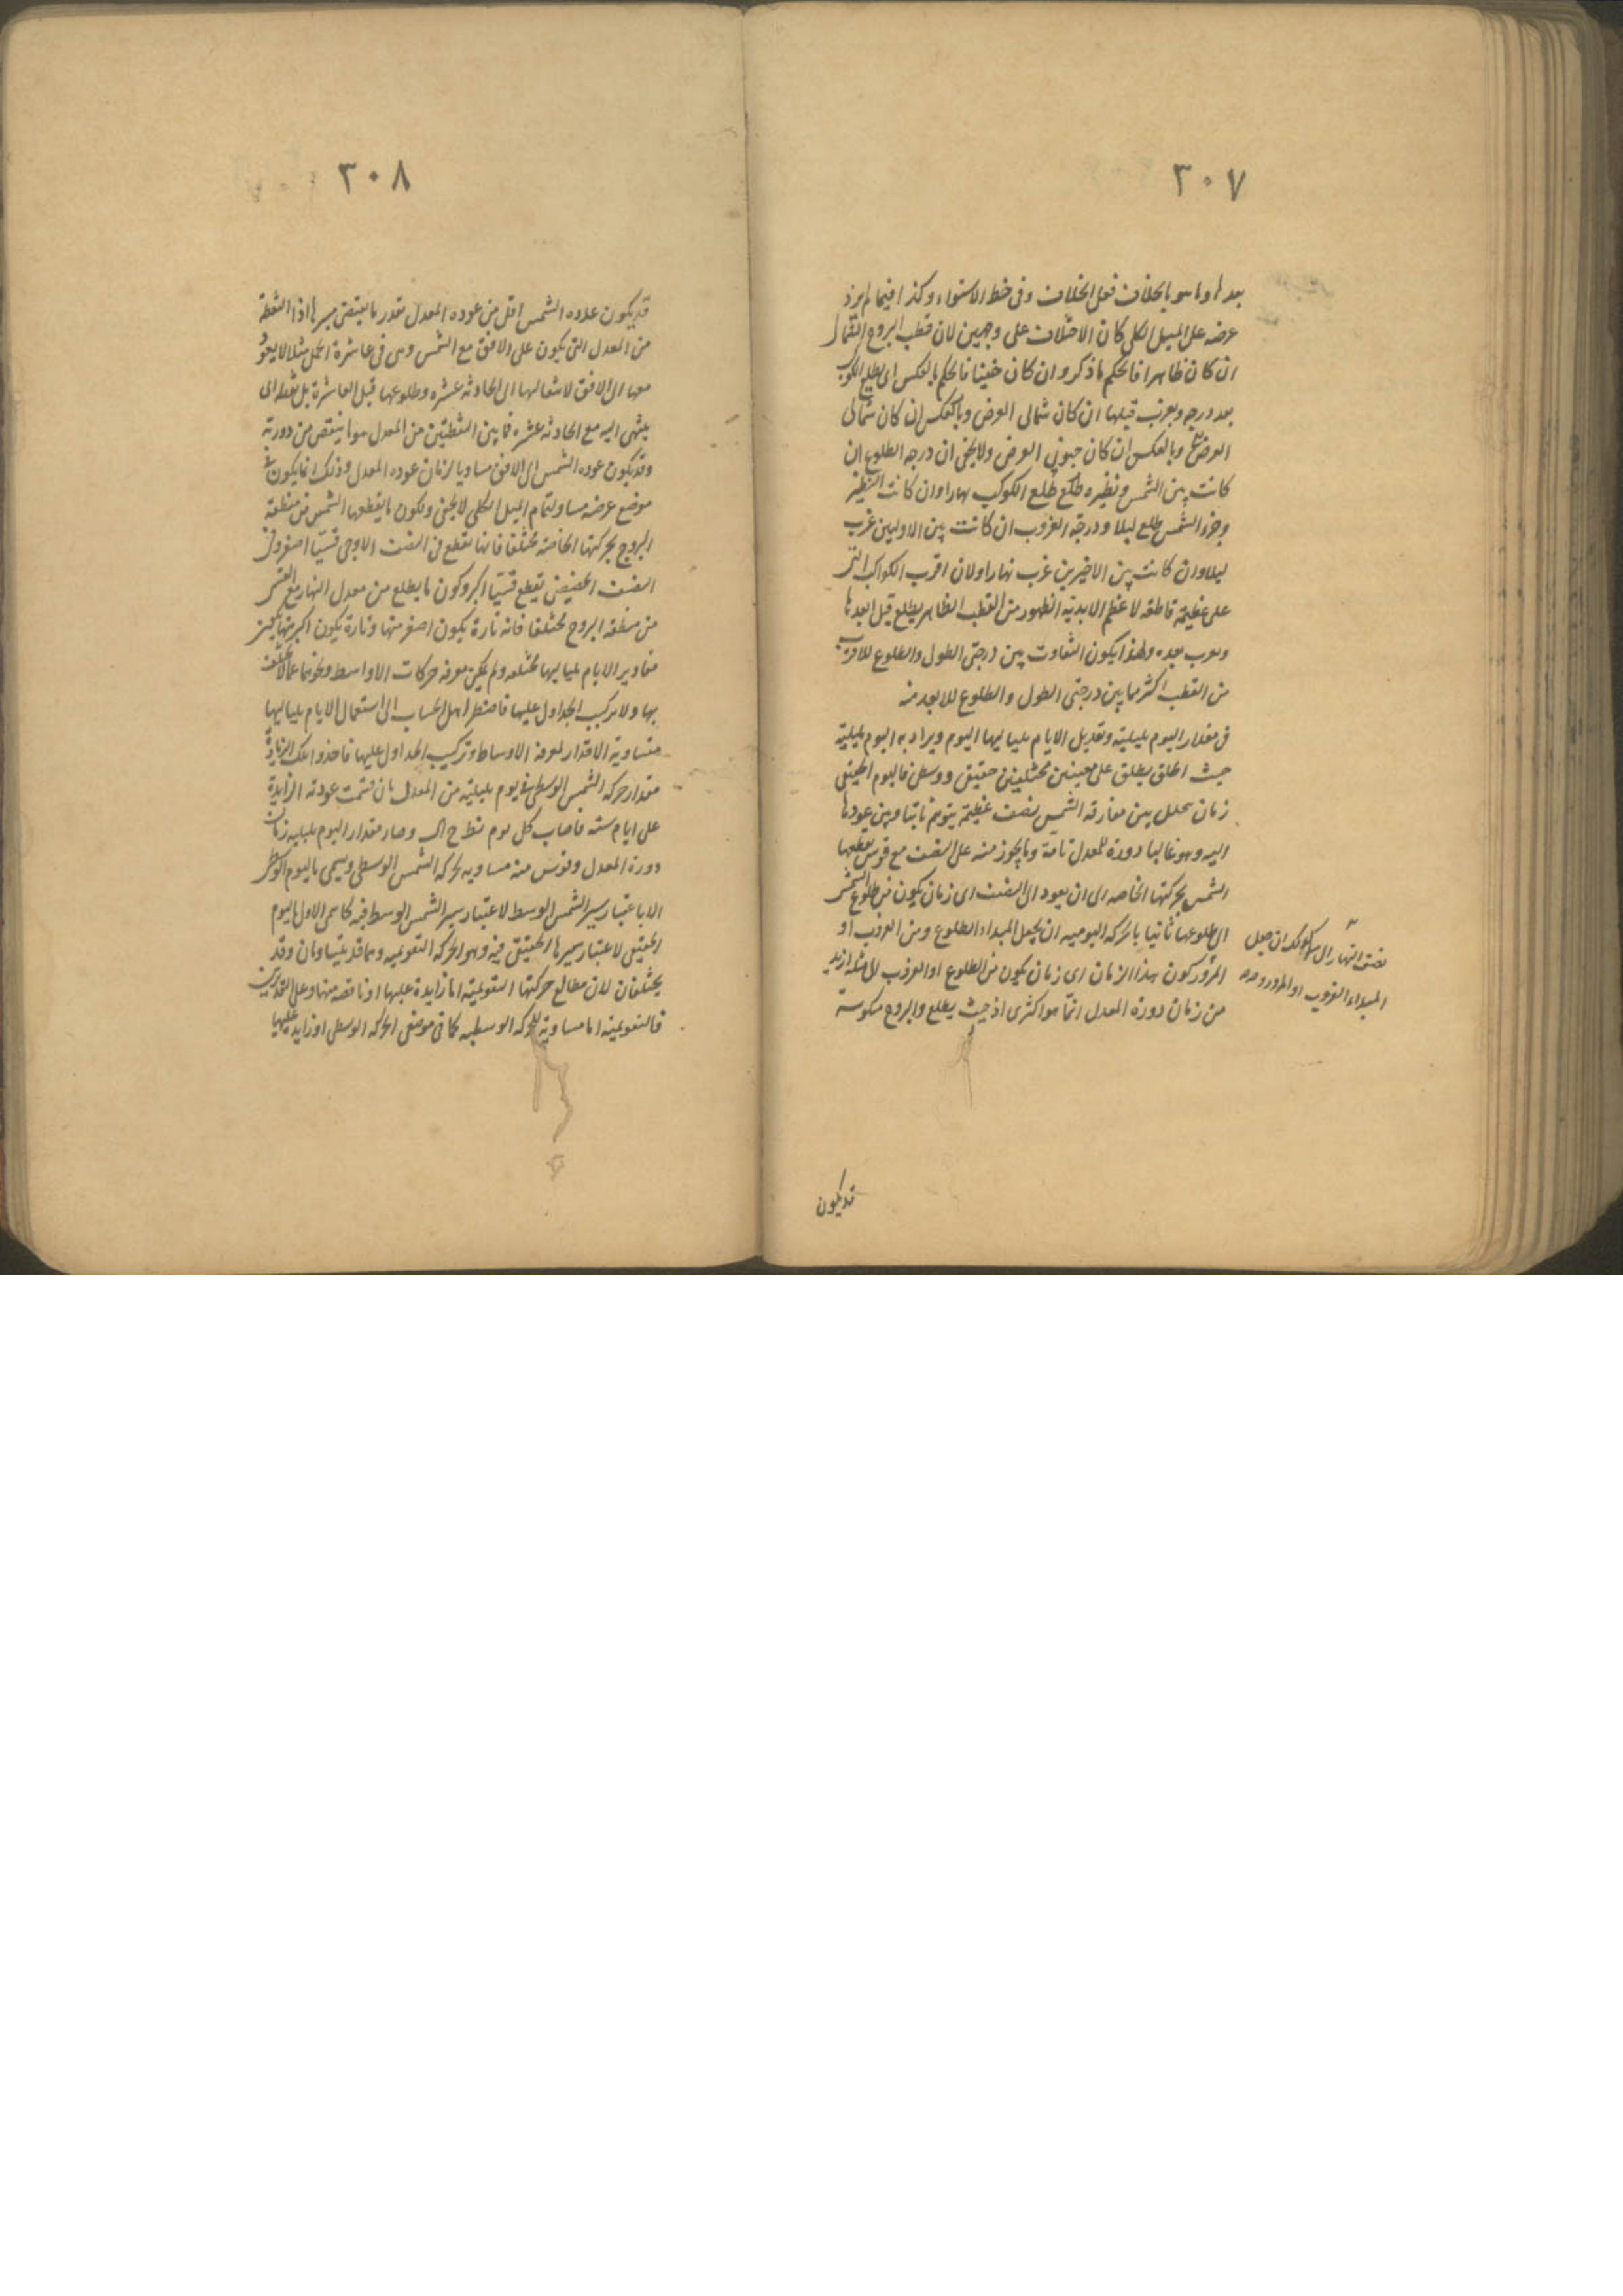 ٣٠٧
بعدها وما هو بالخلاف فعلى الخلاف وفى خط الاستواء وكذا فيما لم يزد
عرضه على الميل الكلى كان الاختلاف على وجهين لان قطب البروج الشمالى
ان كان ظاهرا فالحكم ما ذكر وان كان خفيا فالحكم بالعكس اى يطلع الكوكب
بعد درجه ويغرب قبلها ان كان شمالى العرض وبالعكس ان كان شمالى
العرض وبالعكس ان كان جنوبى العرض ولا يخفى ان درجه الطلوع ان
كانت بين الشمس ونظيره طلع الكوكب نهارا وان كانت النظير
وجزء الشمس طلع ليلا ودرجة الغروب ان كانت بين الاوليين غرب
ليلا وان كانت بين الاخيرين غرب نهارا ولان اقرب الكواكب التى
على عظيمة قاطعه لاعظم الابدية الظهور من القطب الظاهر يطلع قبل ابعدها
ويغرب بعده ولهذا يكون التفاوت بين درجتى الطول والطلوع للاقرب
من القطب اكثر مما بين درجتى الطول والطلوع للابعد منه
فى مقدار اليوم بليلته وتعديل الايام بلياليها اليوم ويراد به اليوم بليلته
حيث اطلق يطلق على معنيين مختلفين حقيقى ووسطى فاليوم الحقيقى
زمان تخلل بين مفارقة الشمس نصف عظيمة يتوهم ثابتا وبين عودها
اليه وهو غالبا دورة للمعدل تامة وما يجوز منه على النصف مع قوس يقطعها
الشمس بحركتها الخاصه اى ان يعود الى النصف اى زمان يكون من طلوع الشمس
الى طلوعها ثانيا بالحركه اليوميه ان يجعل المبداء الطلوع ومن الغروب او
المرور كون هذا الزمان اى زمان يكون من الطلوع او الغروب الى مثله ازيد
من زمان دورة المعدل انما هو اكثرى اذ حيث يطلع البروج منكوسة
نصف النهار الى ان جعل
المبداء الغروب او المرور
قد يكون
٣٠٨
قد يكون عوده الشمس اقل من عوده المعدل بقدر ما يقتضى سيرها اذ النقطة
من المعدل التى يكون على الافق مع الشمس وهى فى عاشرة الحمل مثلا لا يعود
معها الى الافق لانتقالها الى الحادية عشره وطلوعها قبل العاشرة بل نقطه اى
ينتهى اليه مع الحاديه عشره فما بين النقطتين من المعدل هو ما ينقص من دورته
وقد يكون عوده الشمس الى الافق مساويا لزمان عوده المعدل وذلك انما يكون فى
موضع عرضه مساو لتمام الميل الكلى لا يخفى ولكون ما يقطعها الشمس من منطقة
البروج بحركتها الخاصة مختلفا فانها تقطع فى النصف الاوجى قسيا اصغر وفى
النصف الحضيضى يقطع قسيا اكبر وكون ما يطلع من معدل النهار مع القسى
من منطقه البروج مختلفا فانه تارة يكون اصغر منها وتارة يكون اكبر منها يكون
مقادير الايام بلياليها مختلفه ولم يمكن معرفه حركات الاواسط ونحوها مما لا يختلف
بها ولا تركيب الجداول عليها فاضطر اهل الحساب الى استعمال الايام بلياليها
متساوية الاقدار لمعرفة الاوساط وتركيب الجداول عليها فاخذوا تلك الزيادة
مقدار حركه الشمس الوسطى فى يوم بليلته من المعدل بان قسمت عودته الزايدة
على ايام سنه فاصاب كل يوم نط ح اك وصار مقدار اليوم بليليه زمان
دورة المعدل وقوس منه مساويه لحركه الشمس الوسطى ويسمى باليوم الوسطى
الا باعتبار سير الشمس الوسط لاعتبار سير الشمس الوسط فيه كاسمى الاول باليوم
الحقيقى لاعتبار سيرها الحقيقى فيه وهو الحركه التقويميه وهما قد يتساويان وقد
يختلفان لان مطالع حركتها التقويمية اما زايدة عليها او ناقصه منها وعلى التقديرين
فالتقويمية اما مساوية للحركه الوسطيه كما فى موضعى الحركه الوسطى او زايده عليها